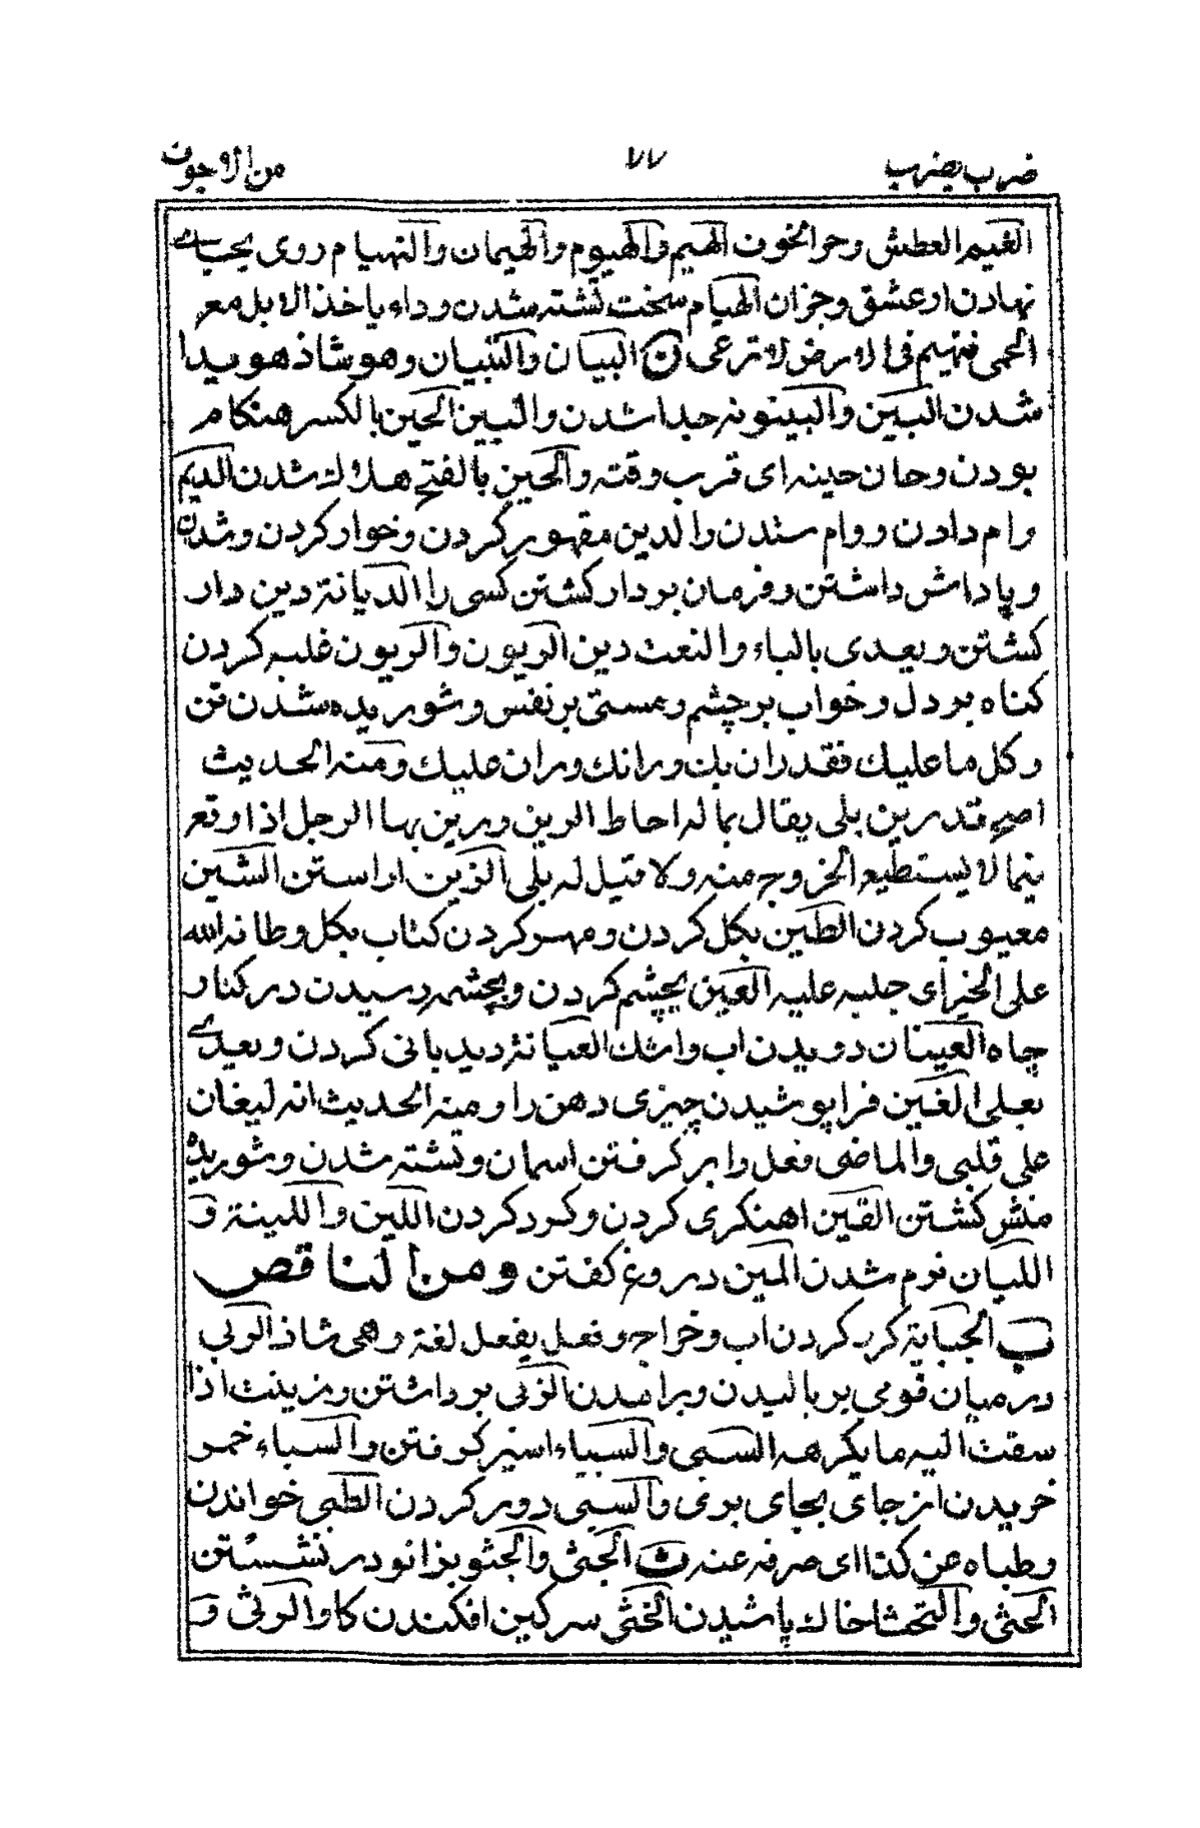 ضرب يضرب ٧٧ من الاجوف
الغيم العطش وحر الجوف الهيم والهيوم والهيمان والتهيام روى بجاى
نهادن از عشق وجزان الهيام سخت تشنه شدن وداء ياخذ الابل مع
الحمى فتهيم فى الارض لا ترعى ن البيان والتبيان وهو شاذ هويدا
شدن البين والبينونه جدا شدن والتبيين الحين بالكسر هنكام
بودن وحان حينه اى قرب وقته والحين بالفتح هلاك شدن الدين
وام دادن ووام ستدن والدين مقهور كردن وخوار كردن وشدن
وپاداش داشتن وفرمان بردار كشتن كسى را الديانة دين دار
كشتن ويعدى بالباء والنعت دين الريون والريون غلبه كردن
كناه بر دل وخواب بر چشم ومستى بر نفس وشوريده شدن تن
وكل ما عليك فقد ران بك ورانك وران عليك ومنه الحديث
اصبح قد رين بلى يقال بما له احاط الرين ورين بها الرجل اذا وقع
فيما لا يستطيع الخروج منه ولا قبل له بلى الزين اراستن الشين
معيوب كردن الطين بكل كردن ومهر كردن كتاب بكل وطانه الله
على الخير اى جلبه عليه العين بچشم كردن وبچشمه رسيدن در كنار
چاه العينان دويدن اب واشك العيانة ديدبانى كردن ويعدى
بعلى الغين فراپوشيدن چيزى دهن را ومنه الحديث انه ليغان
على قلبى والماضى فعل وابر كرفتن اسمان وتشنه شدن وشوريده
منش كشتن القين اهنكرى كردن وكرد كردن اللين واللينة و
الليان نرم شدن المين دروغ كفتن ومن الناقص
ب الجباية كرد كردن اب وخراج وفعل يفعل لغة وهى شاذ الربى
درميان قومى بر باليدن وبرامدن الزبى برداشتن وزبيت اذا
سقت اليه ما يكرهه السبى والسباء اسير كرفتن والسباء خمر
خريدن از جاى بجاى برى والسبى دور كردن الطبى خواندن
وطباه عن كذا اى صرفه عنه ث الجثى والجثو بزانو در نشستن
الحثى والتحثا خاك پاشيدن الخثى سركين افكندن كاو الرثى و